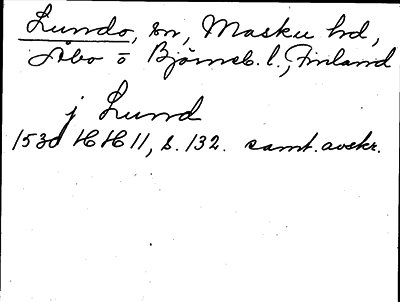 Lundo, sn, Masku hd,
Åbo o Björneb. l., Finland
j Lund
1530 HH 11, s. 132. samt. avskr.